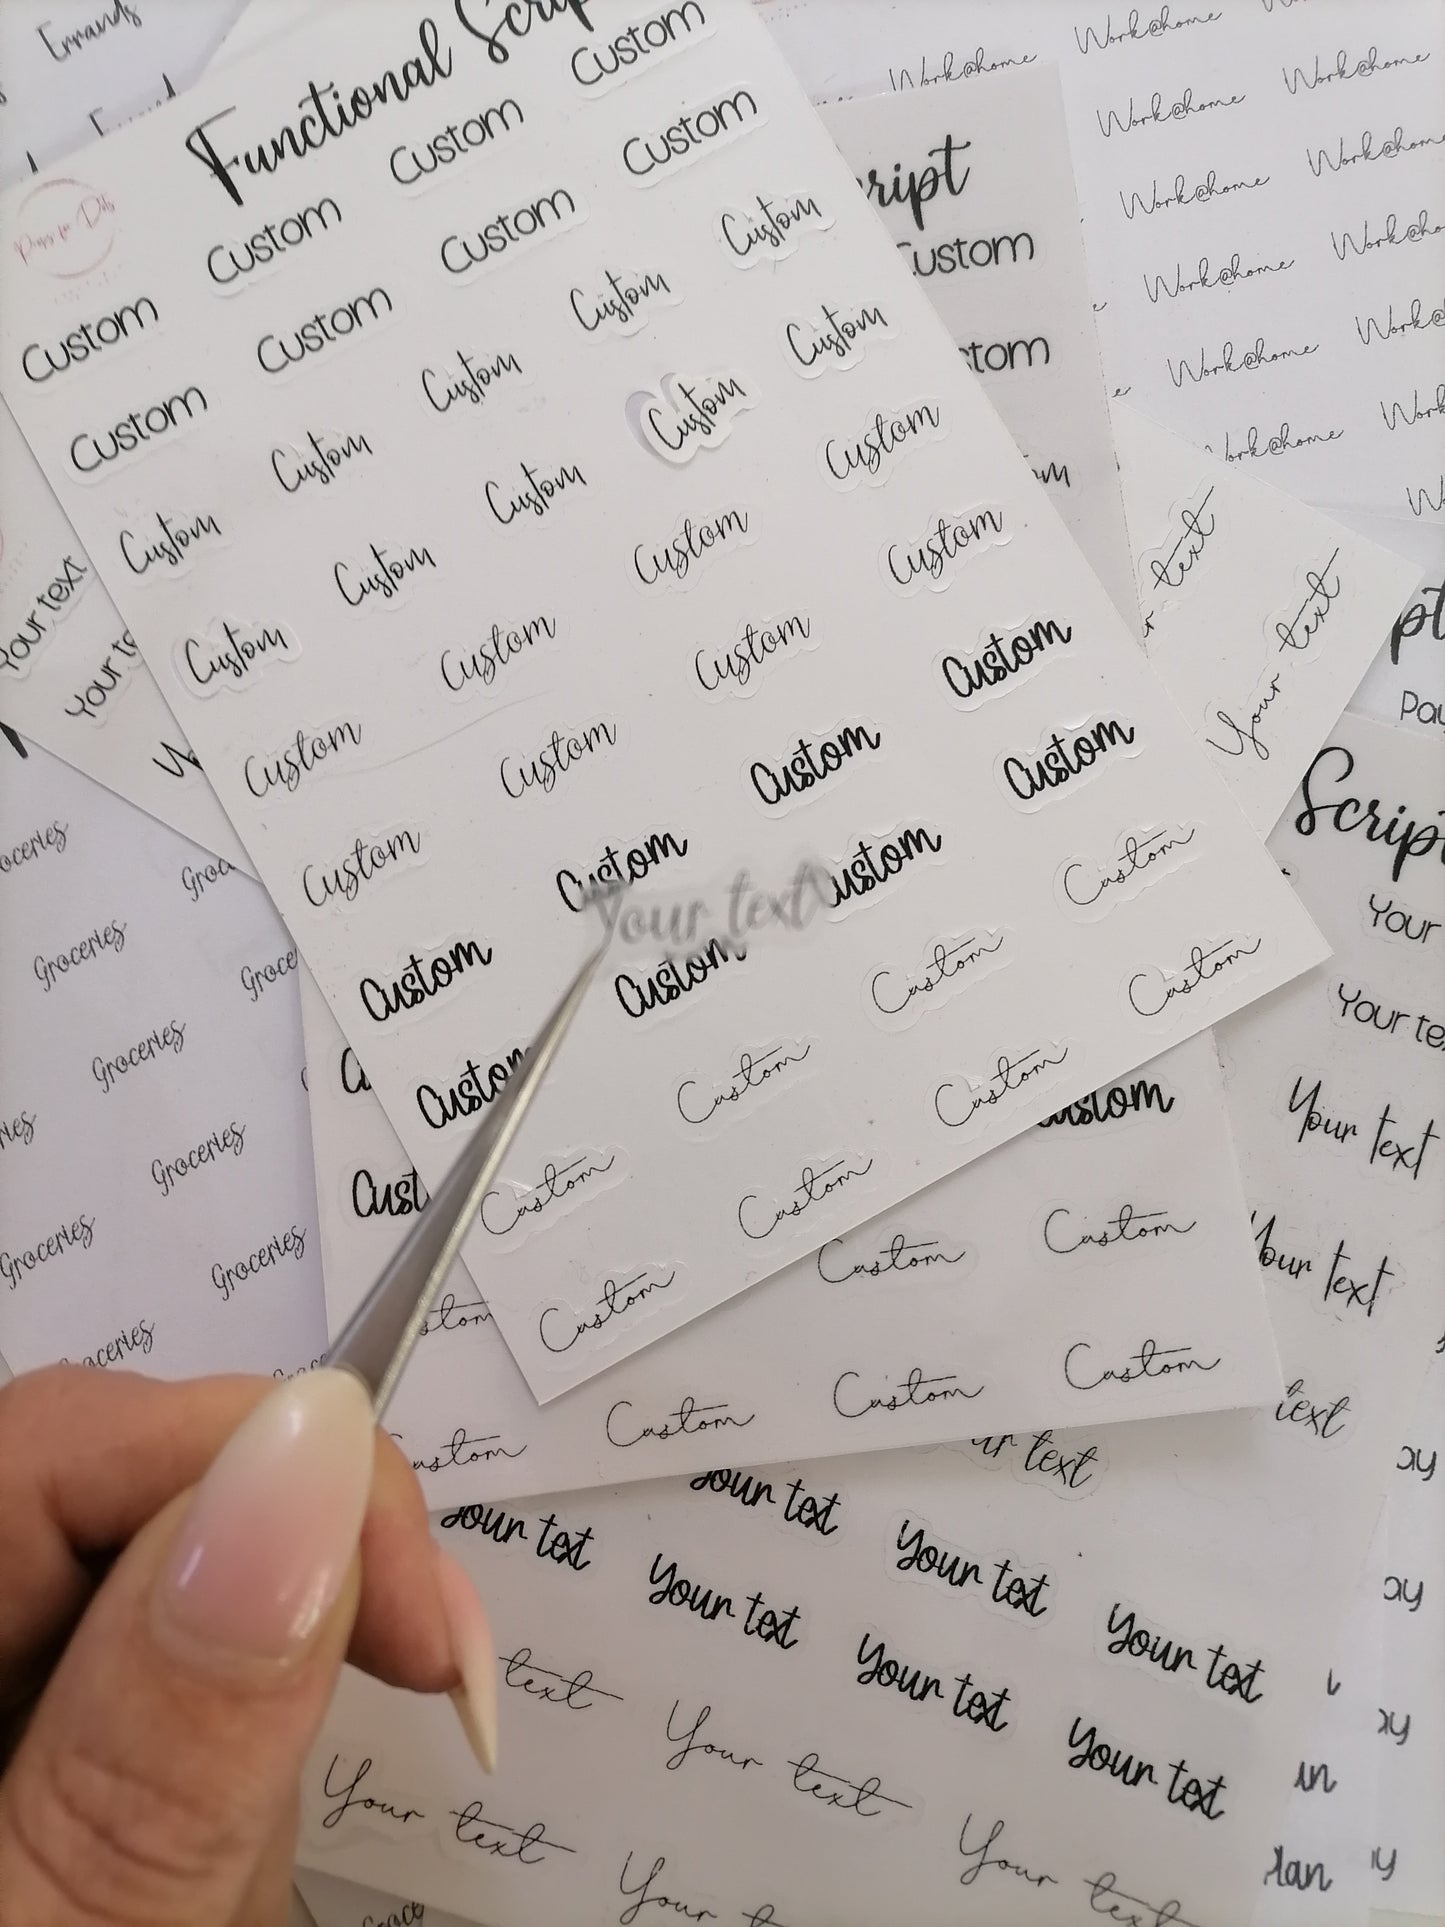 Errands
Functional Script
Custom Custom Custom Custom
Custom Custom Custom Custom
Custom Custom Custom Custom Custom
Custom Custom Custom Custom
Custom Custom Custom Custom
Custom Custom Custom Custom
Custom Custom Custom Custom
Custom Custom Custom Custom
Custom Custom Custom Custom
Custom Custom Custom Custom
Your text
Work@home Work@home
Work@home Work@home
Work@home Work@home
Work@home Work@home
Work@home Work@home
Work@home
Script
Custom
Custom
text
Your text
Your text
Script
Your
Your text
Your text
Your text
text
Groceries
Groceries
Groceries
Groceries
Groceries
Groceries
Groceries
Custom
Custom Custom
Custom
Custom Custom Custom
your text your text your text your text
your text your text your text
text Your text
Your text Your text
Your